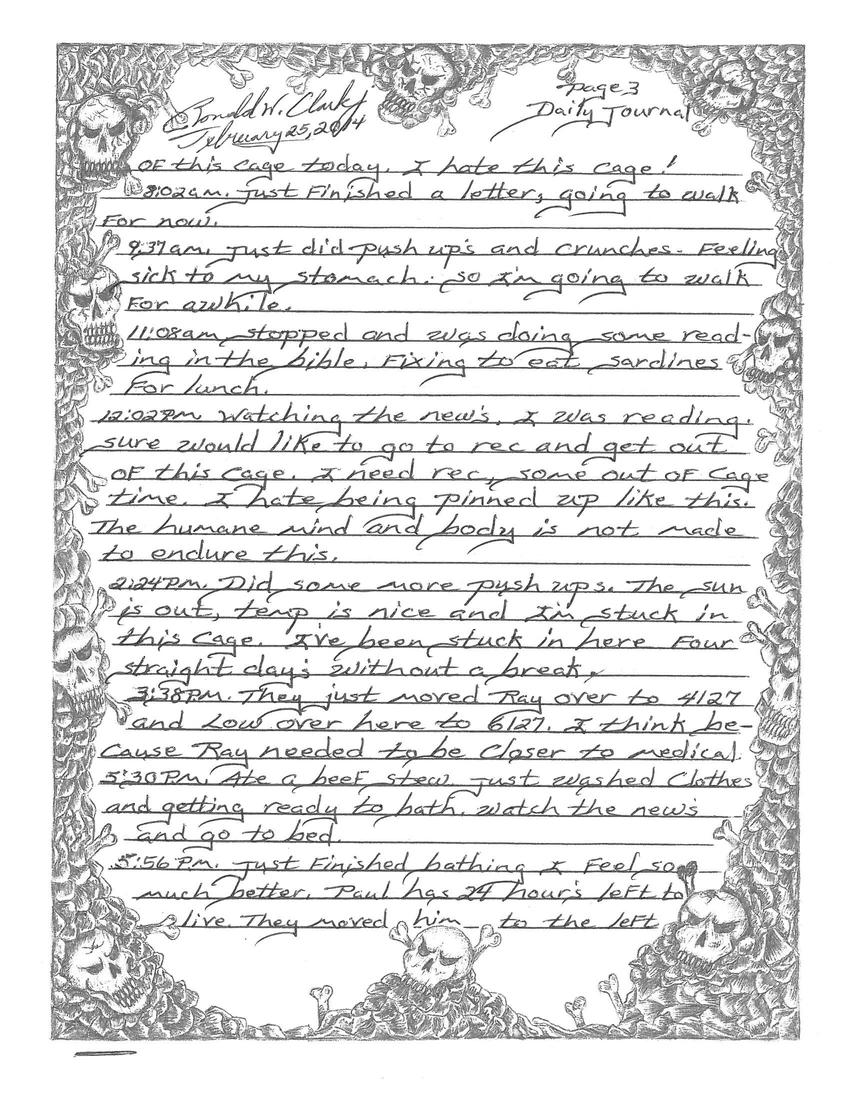 Ronald W. Clark Jr
February 25, 2014
page 3
Daily Journal
OF this cage today. I hate this cage!
8:02am. Just Finished a letter, going to walk
For now.
9:37am. Just did push up's and crunches. Feeling
sick to my stomach. So I'm going to walk
For awhile.
11:08am stopped and was doing some read-
ing in the bible. Fixing to eat sardines
For lunch.
12:02PM Watching the new's. I was reading.
sure would like to go to rec and get out
OF this cage. I need rec, some out OF cage
time. I hate being pinned up like this.
The humane mind and body is not made
to endure this.
2:24PM. Did some more push ups. The sun
is out, temp is nice and I'm stuck in
this cage. I've been stuck in here Four
straight day's without a break.
3:38PM. They just moved Ray over to 4127
and Low over here to 6127. I think be-
cause Ray needed to be closer to medical.
5:30PM. Ate a beeF stew. Just washed Clothes
and getting ready to bath. Watch the new's
and go to bed.
5:56PM. Just Finished bathing I Feel so
much better. Paul has 24 hour's left to
live. They moved him to the left